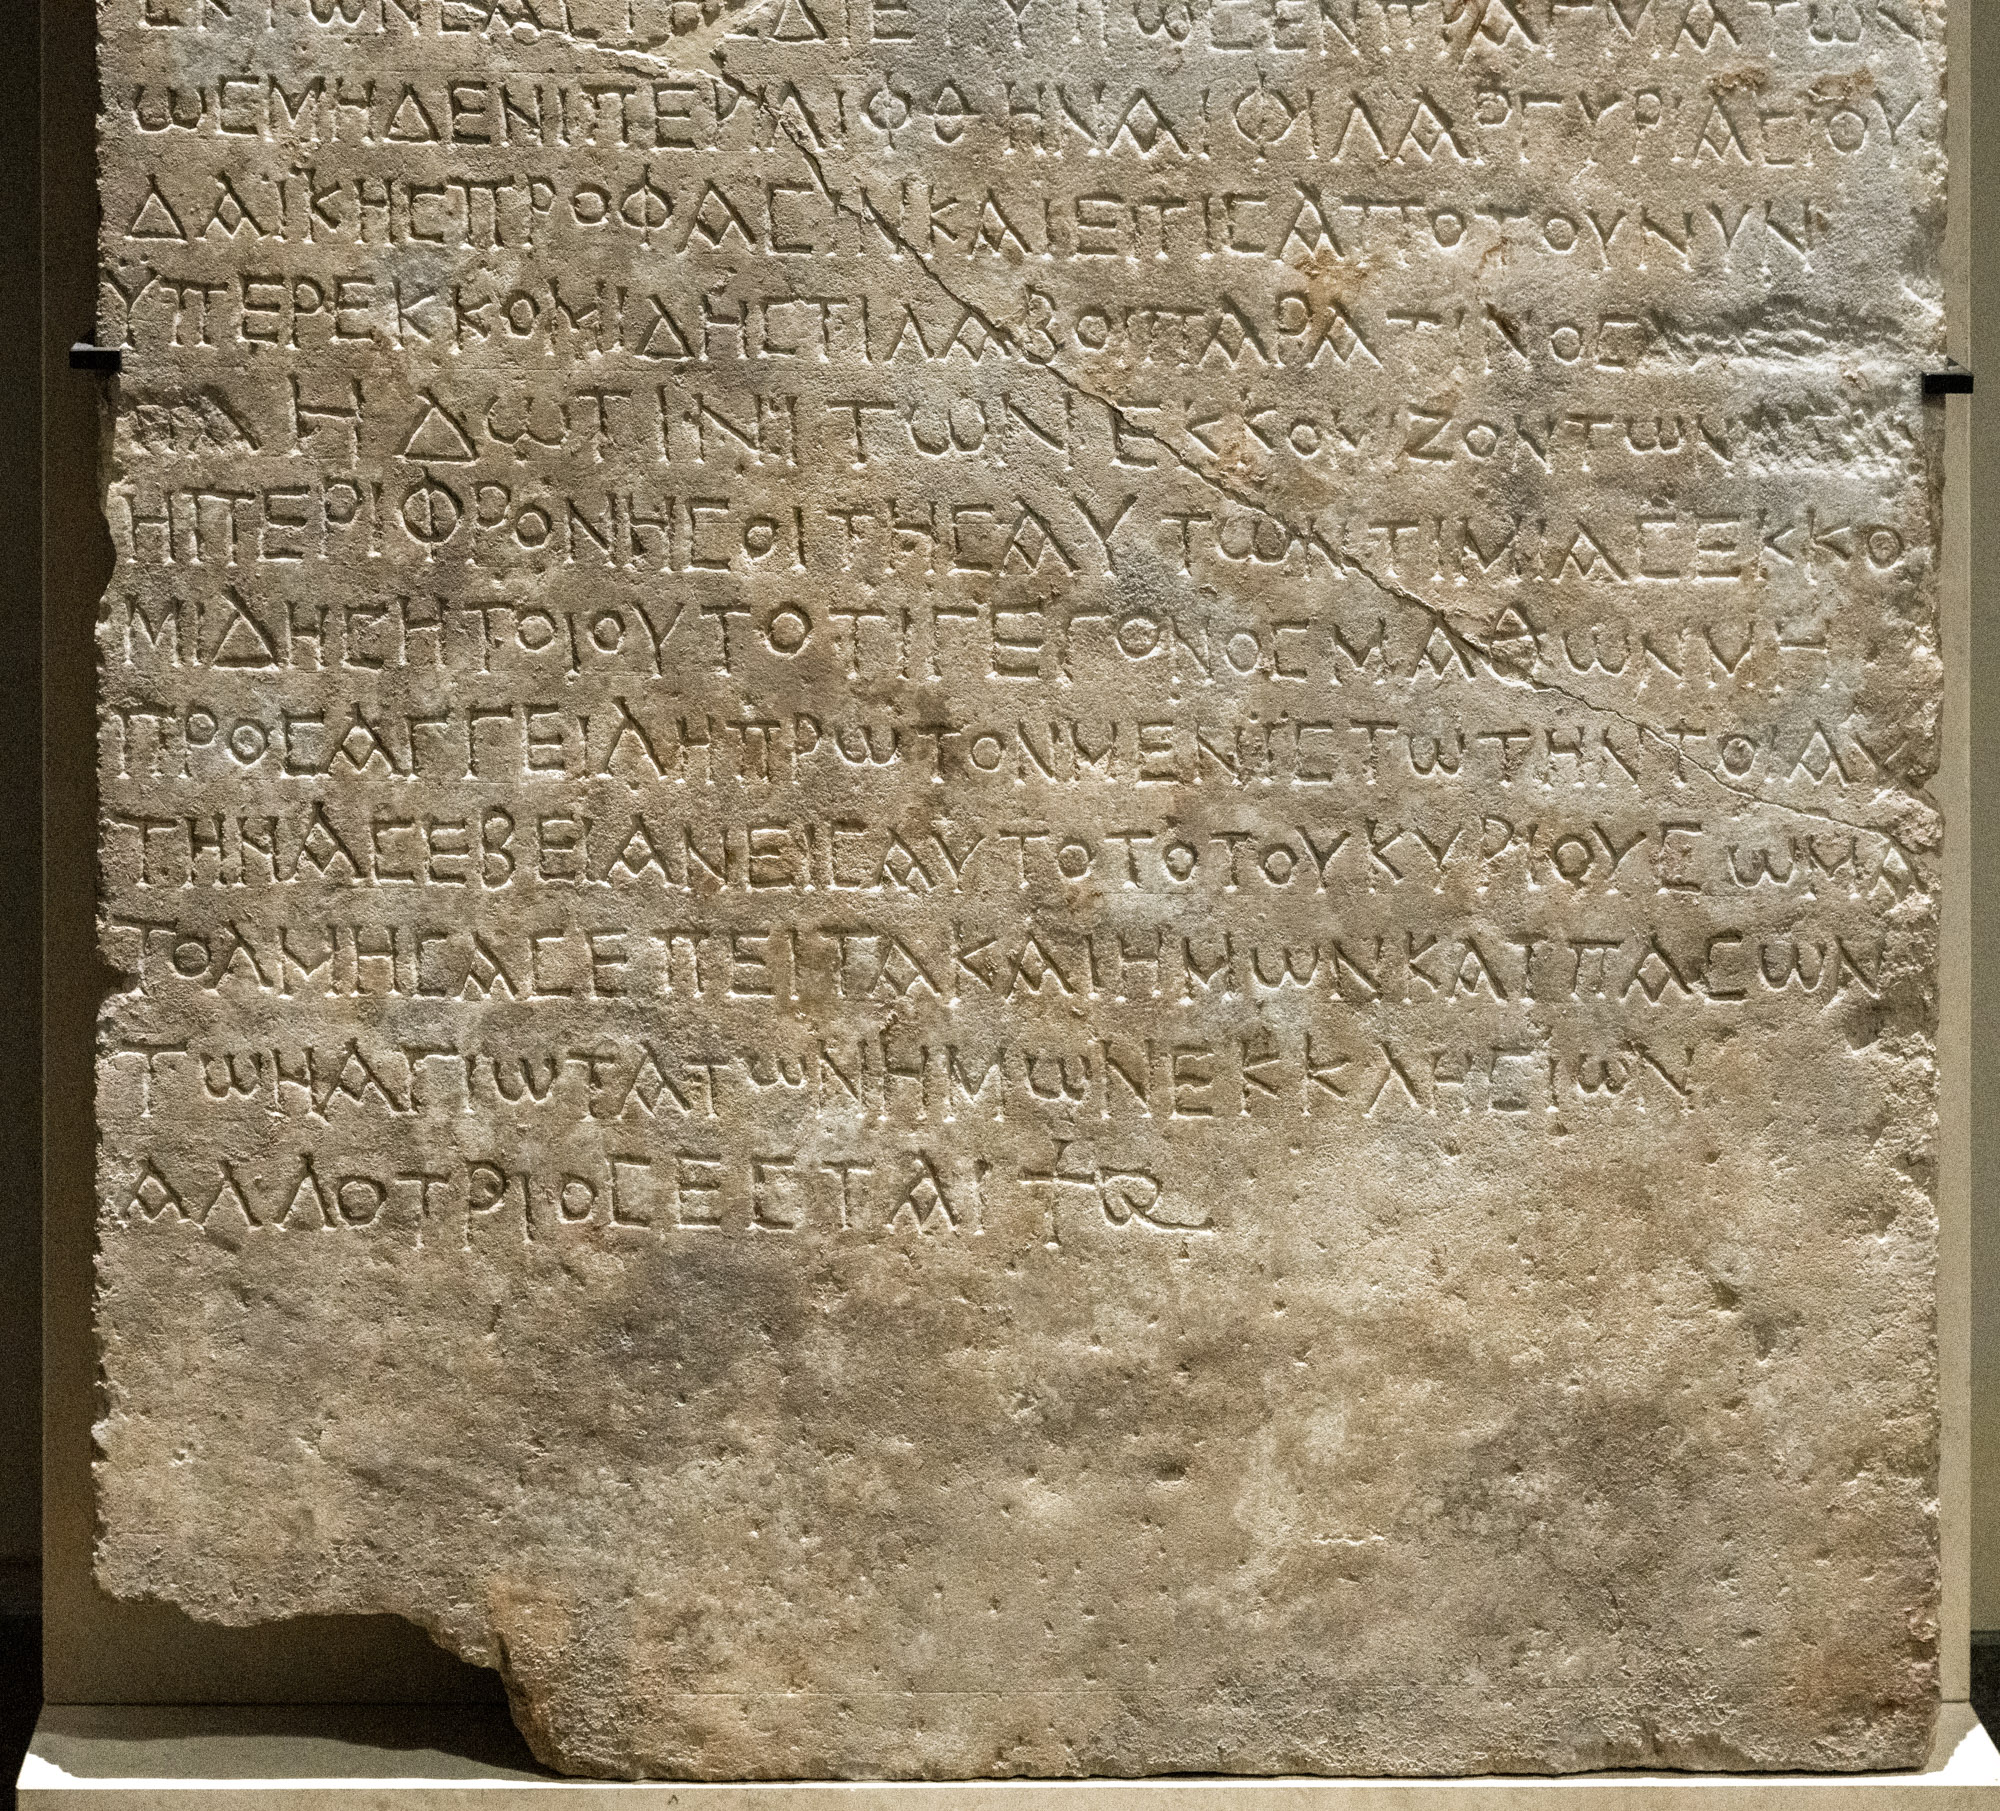 ΩϹΜΗΔΕΝΙΠΕΡΙΛΙΦΘΗΝΑΙΦΙΛΑΡΓΥΡΙΑϹΙΟΥ
ΔΑΙΚΗϹΠΡΟΦΑϹΙΝΚΑΙΕΙΤΙϹΑΠΟΤΟΥΝΥΝ
ΥΠΕΡΕΚΚΟΜΙΔΗϹΤΙΛΑΒΟΙΠΑΡΑΤΙΝΟϹ
ΗΔΩΤΙΝΙΤΩΝΕΚΚΟΜΙΖΟΝΤΩΝ
ΗΠΕΡΙΦΡΟΝΗϹΟΙΤΗϹΑΥΤΩΝΤΙΜΙΑϹΕΚΚΟ
ΜΙΔΗϹΗΤΟΙΟΥΤΟΤΙΓΕΓΟΝΟϹΜΑΘΩΝΜΗ
ΠΡΟϹΑΓΓΕΙΛΗΠΡΩΤΟΝΜΕΝΙϹΤΩΤΗΝΤΟΙΑΥ
ΤΗΝΑϹΕΒΕΙΑΝΕΙϹΑΥΤΟΤΟΤΟΥΚΥΡΙΟΥϹΩΜΑ
ΤΟΛΜΗϹΑϹΕΠΕΙΤΑΚΑΙΗΜΩΝΚΑΙΠΑϹΩΝ
ΤΩΝΑΓΙΩΤΑΤΩΝΗΜΩΝΕΚΚΛΗϹΙΩΝ
ΑΛΛΟΤΡΙΟϹΕϹΤΑΙ +